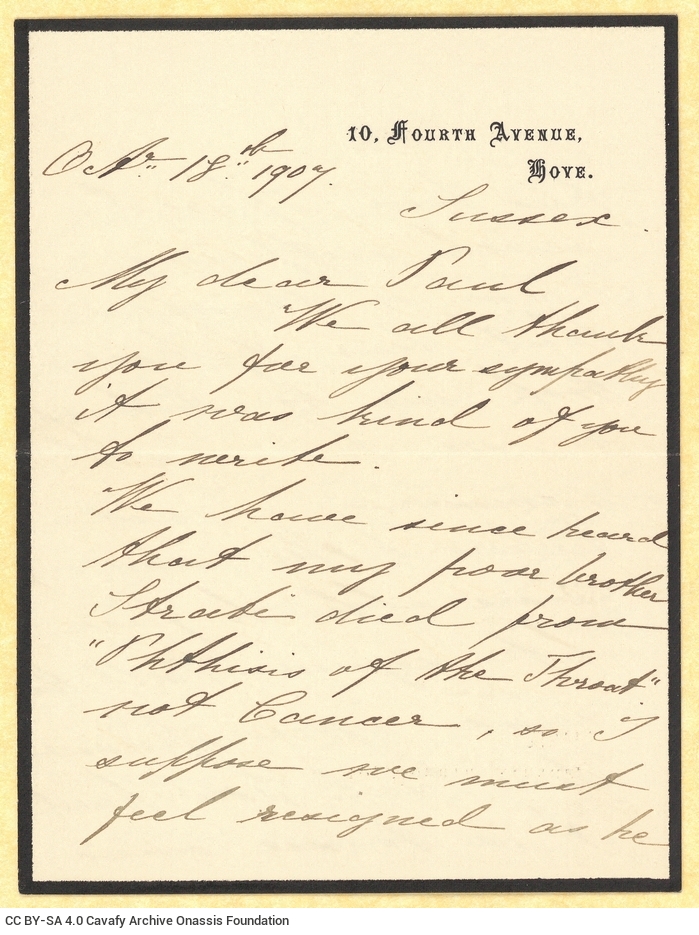 10, Fourth Avenue,
Hove.
Octr. 18th 1907.
Sussex.
My dear Paul
We all thank
you for your sympathy
it was kind of you
to write.
We have since heard
that my poor brother
Strati died from
"Phthisis of the Throat"
not Cancer, so I
suppose we must
feel resigned as he
CC BY-SA 4.0 Cavafy Archive Onassis Foundation